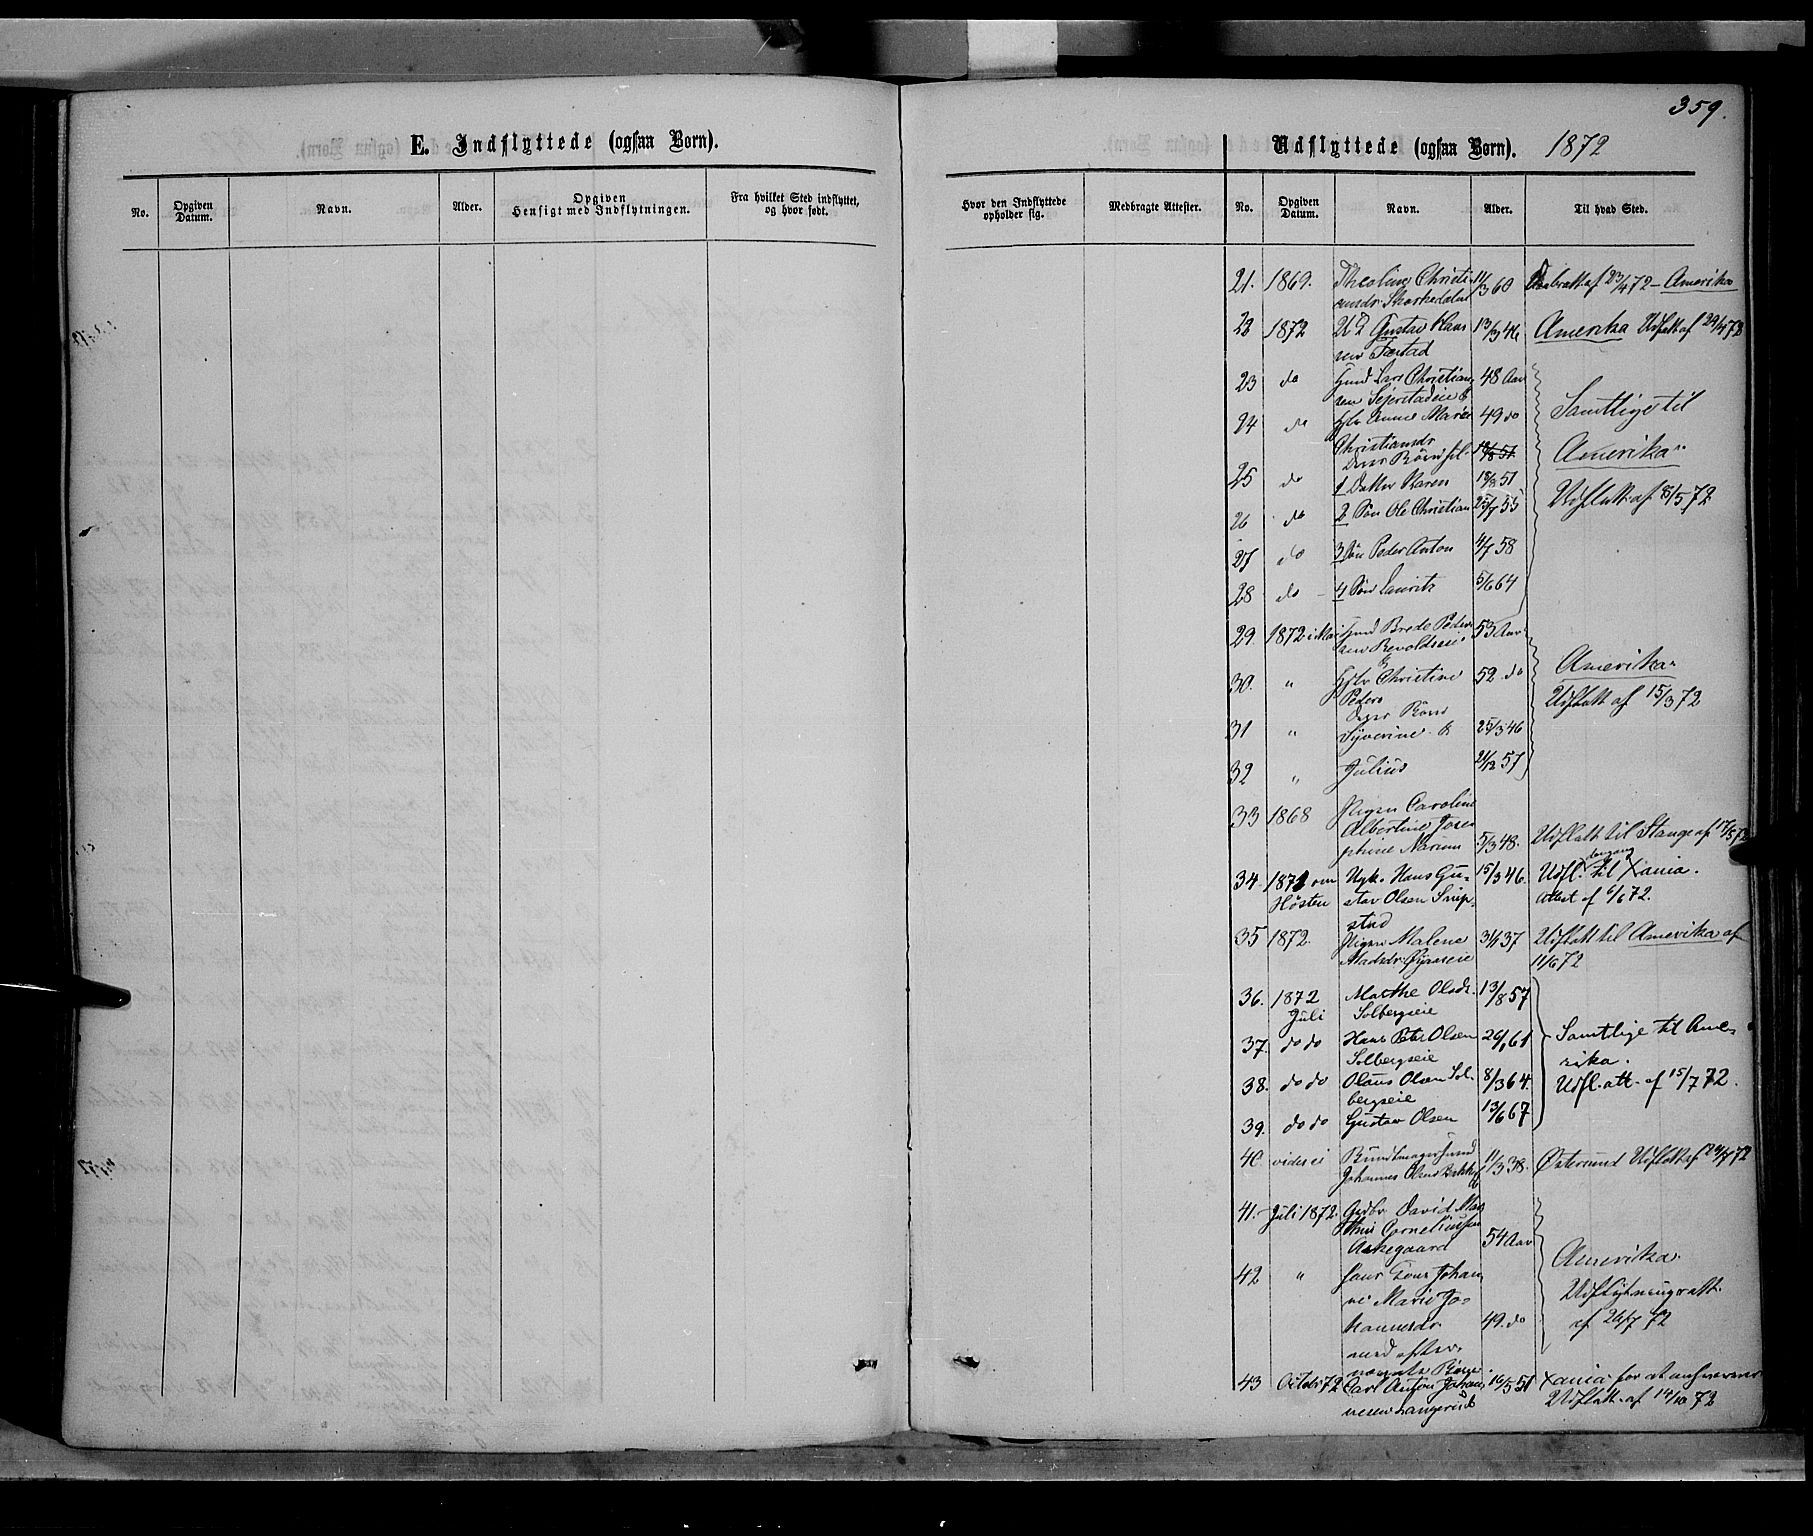 359.
E. Indflyttede (ogsaa Børn).
Udflyttede (ogsaa Børn). 1872
No. Opgiven Datum. Navn. Alder. Opgiven Hensigt med Indflytningen. Fra hvilket Sted indflyttet, og hvor født. Hvor den Indflyttede opholder sig. Medbragte Attester. No. Opgiven Datum. Navn. Alder. Til hvad Sted.
21. 1869. Theoline Christi 11/3 60 Daabsatt af 23/4 72 – Amerika
ansdr
22 1872 Gustav Han 13/3 46 Amerika Udflatt af 29/4 72
sen
23 do Huusm Lars Christian 48 Aar
sen
24 do Hstr Anne Marie 49 do Samtlige til
Christiansdr
deres Børn 18/8 51 Amerika
25 do 1 Datter Karen 18/8 51
26 do 2 Søn Ole Christian 25/7 55 Udflatt. af 8/5 72
27 do 3 Søn Peder Anton 4/7 58
28 do 4 Søn Laurits 5/6 64
29. 1872 i Mai Huusm Brede Peder 53 Aar
sen
30. " Hstr Christine 52 do Amerika
Peders Udflatt af 15/3 72
deres Børn
31 " Syverine & 25/3 46
32 " Julius 21/12 57
33 1868 Pigen Caroline
Albertine Jose
phine 5/3 48. Udflatt til Stange af 17/5 72
34. 1871 om Ugk. Hans Gu- 15/3 46. Udfl. til Xania.
Høsten stav Olsen Snip- Attest af 6/6 72.
stad
35 1872. Pigen Malene 31/1 37 Udflatt til Amerika af
Madsdr 11/6 72
36. 1872 Marthe Olsdr. 13/8 57
Juli Solbergseie
37. do do Hans Peter Olsen 26/1 61 Samtlige til Ame-
Solbergseie rika.
38. do do Olaus Olsen Sol- 8/3 64. Udfl. att. af 15/7 72.
bergseie
39. do do Gustav Olsen 13/6 67
40. Johannes Olsen 11/3 38. Østersund Udflatt af 24/7 72
41. Juli 1872. Grdbr. David Ma
this Corneliussen
54 Aar
42 " hans Kone Johan Amerika
ne Marie Jo- Udflytningsatt.
hannesdr 49. do af 26/7 72
med efter-
nævnte Børn
43 Octobr 72 Carl Anton Johan 16/5 51 Xania for at
nesen Udflatt. af 14/10 72